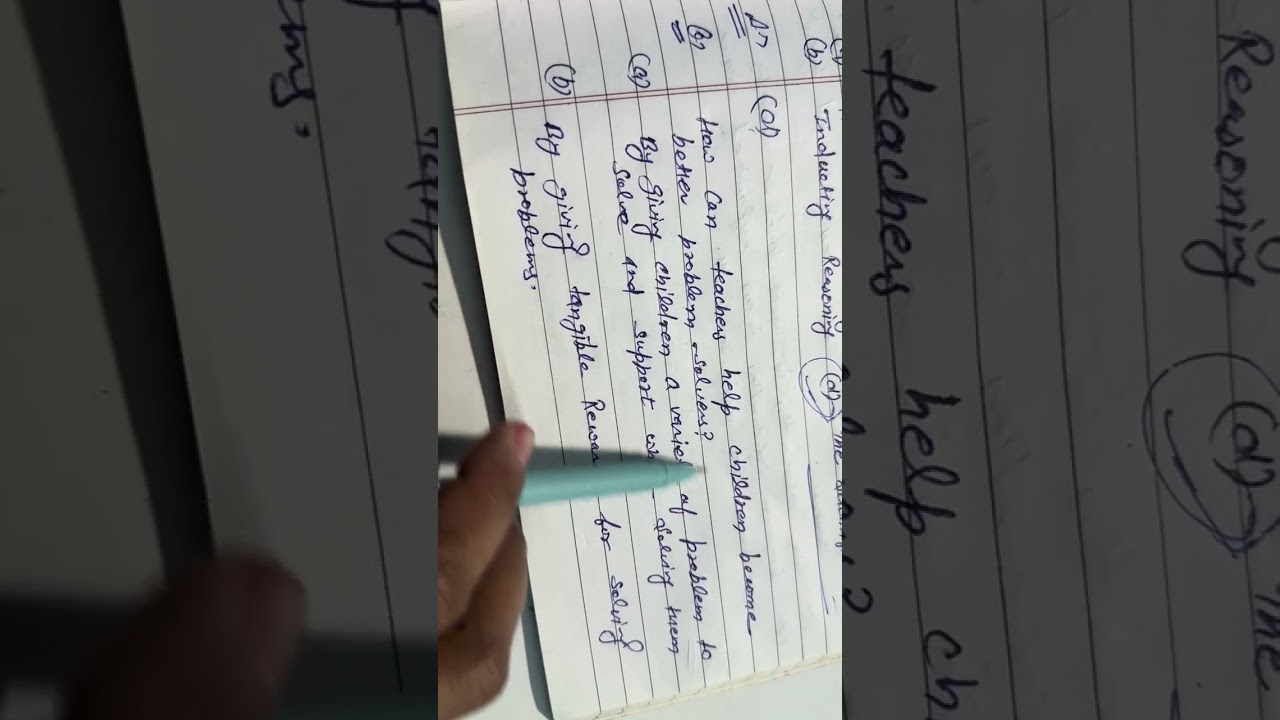 (b) Inducting Reasoning (d)
A→ (d)
How can teachers help children become
better problem-solvers?
(a) By giving children a of problem to
solve and support solving them
(b) By giving tangible for solving
problems.